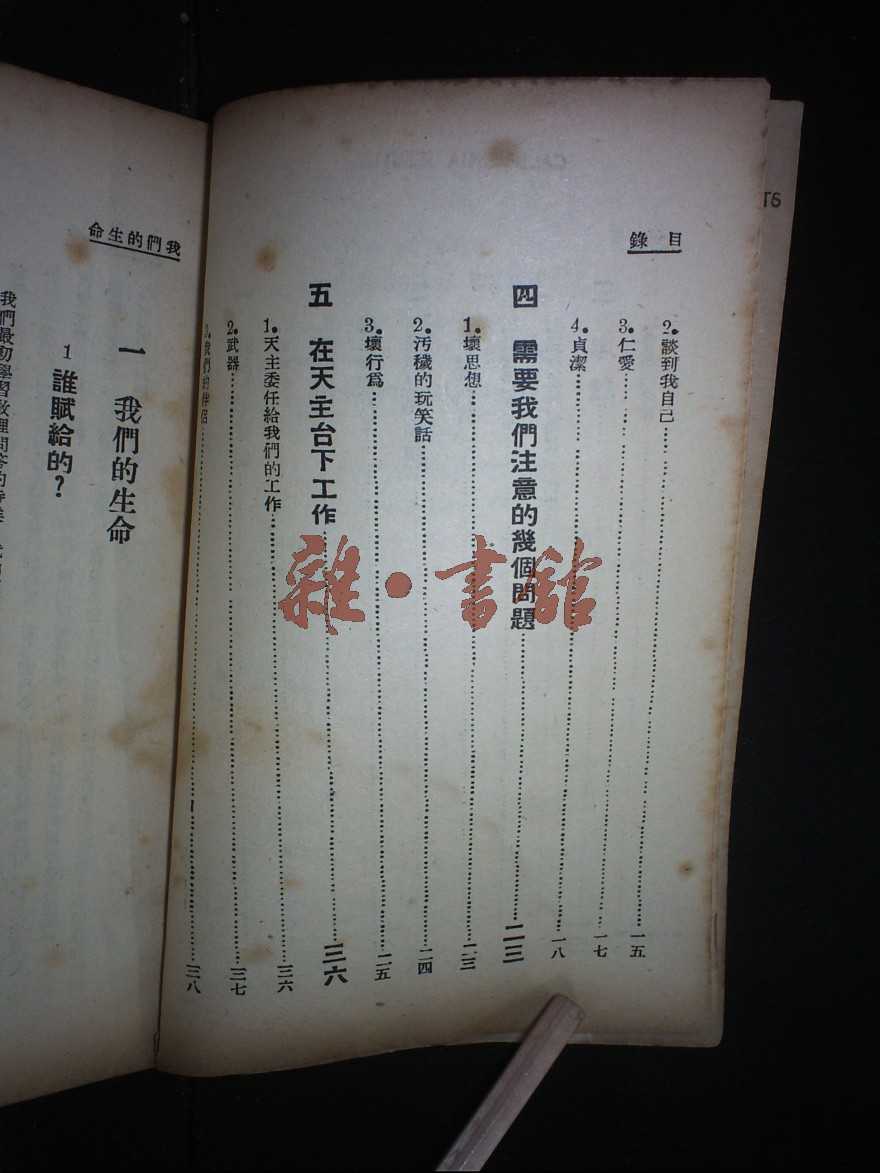 目錄
2. 談到我自己……一五
3. 仁愛……一七
4. 貞潔……一八
四 需要我們注意的幾個問題……二三
1. 壞思想……二三
2. 汚穢的玩笑話……二四
3. 壞行爲……二五
五 在天主台下工作……三六
1. 天主委任給我們的工作……三六
2. 武器……三七
3. 我們的伴侶……三八
雜·書館
我們的生命
一 我們的生命
1 誰賦給的?
我們最初學習教理問答的時候